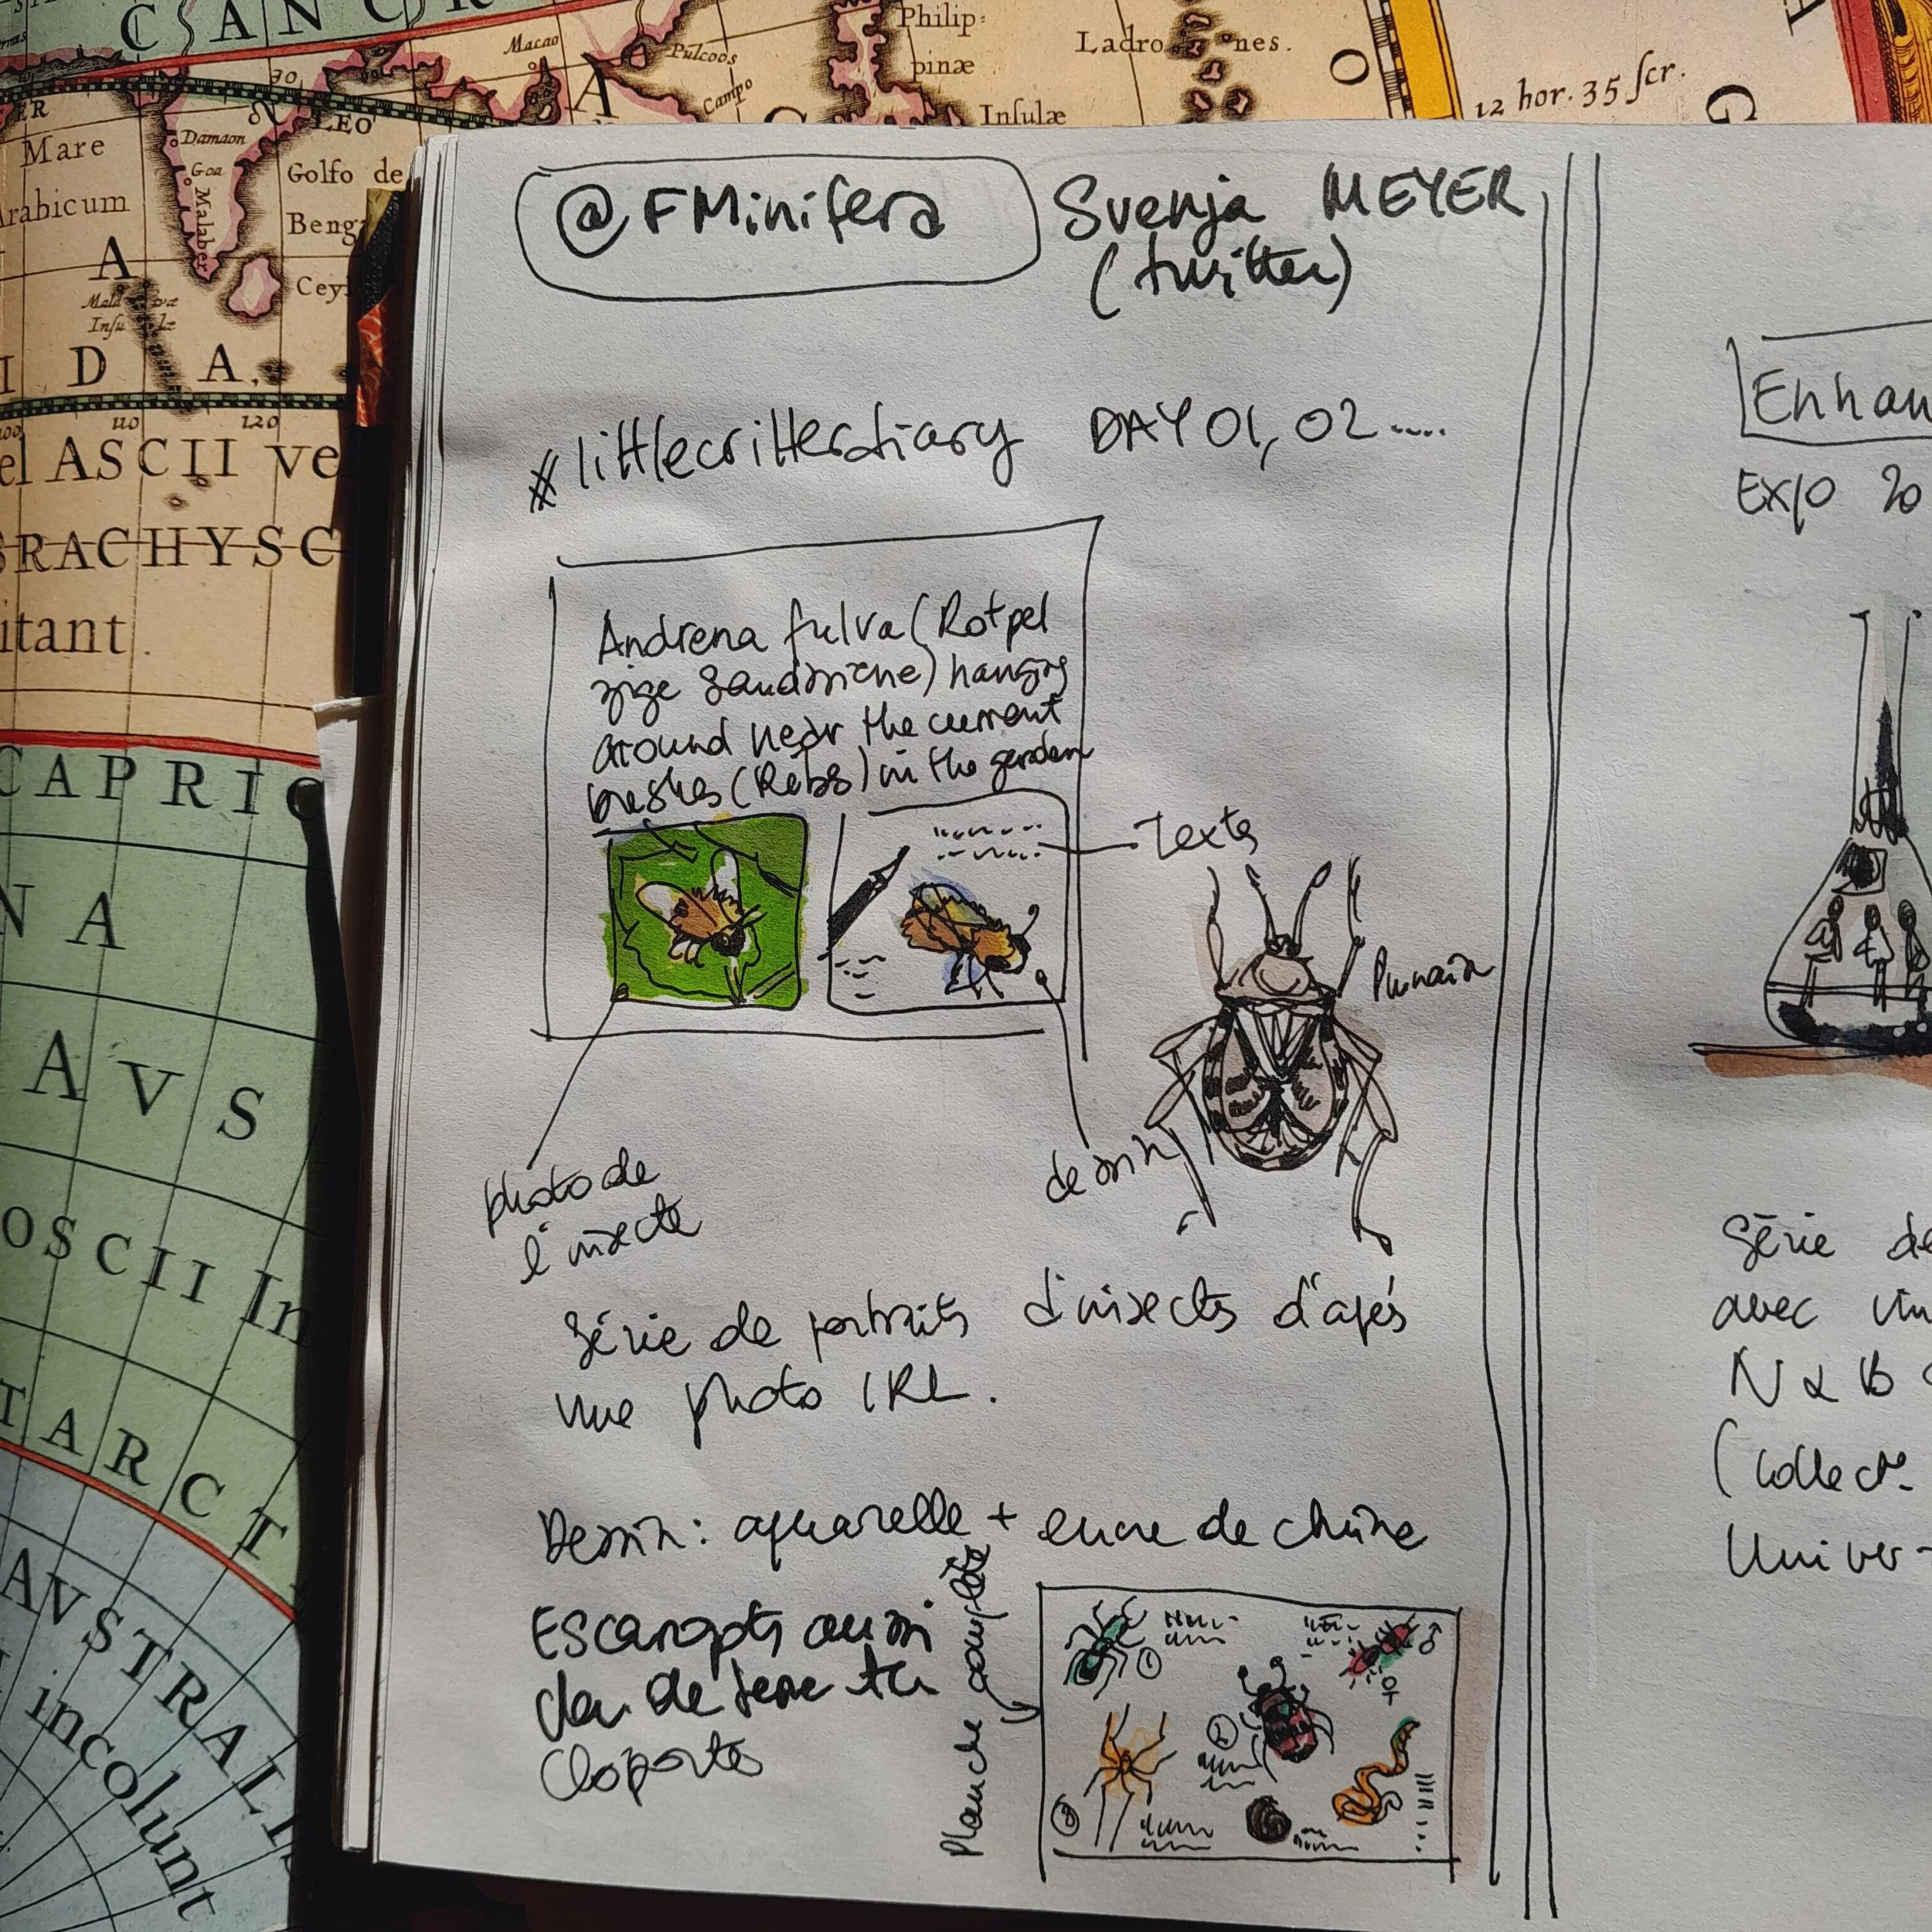 CANCR
Macao
Pulcoos
Campo
Philip=
pinæ
Insulæ
Ladro nes.
O
12 hor. 35 ſcr.
G
ER
LEO
Mare
Arabicum
Damaon
Goa
Malabar
Golfo de
Beng
Cey
A
Mald væ
Inſu læ
I D A.
110
120
el ASCII ve
BRACHYSC
itant.
CAPRIC
N A
A V S
OSCII In
TARCT
AVSTRALI
incolunt
@FMinifera
Svenja MEYER
(twitter)
#littlecritterdiary DAY 01, 02.....
Andrena fulva (Rotpel
zige Sandbiene) hanging
around near the current
bushes (Ribs) in the garden
Texte
Punaise
photo de
l'insecte
dessin
Série de portraits d'insectes d'après
une photo IRL.
Dessin: aquarelle + encre de chine
Escargots aussi
de terre
Cloportes
Planche complète
1
2
3
♂
♀
Enhan
Expo 20
Série de
avec
N & B
(collect°
Univer-